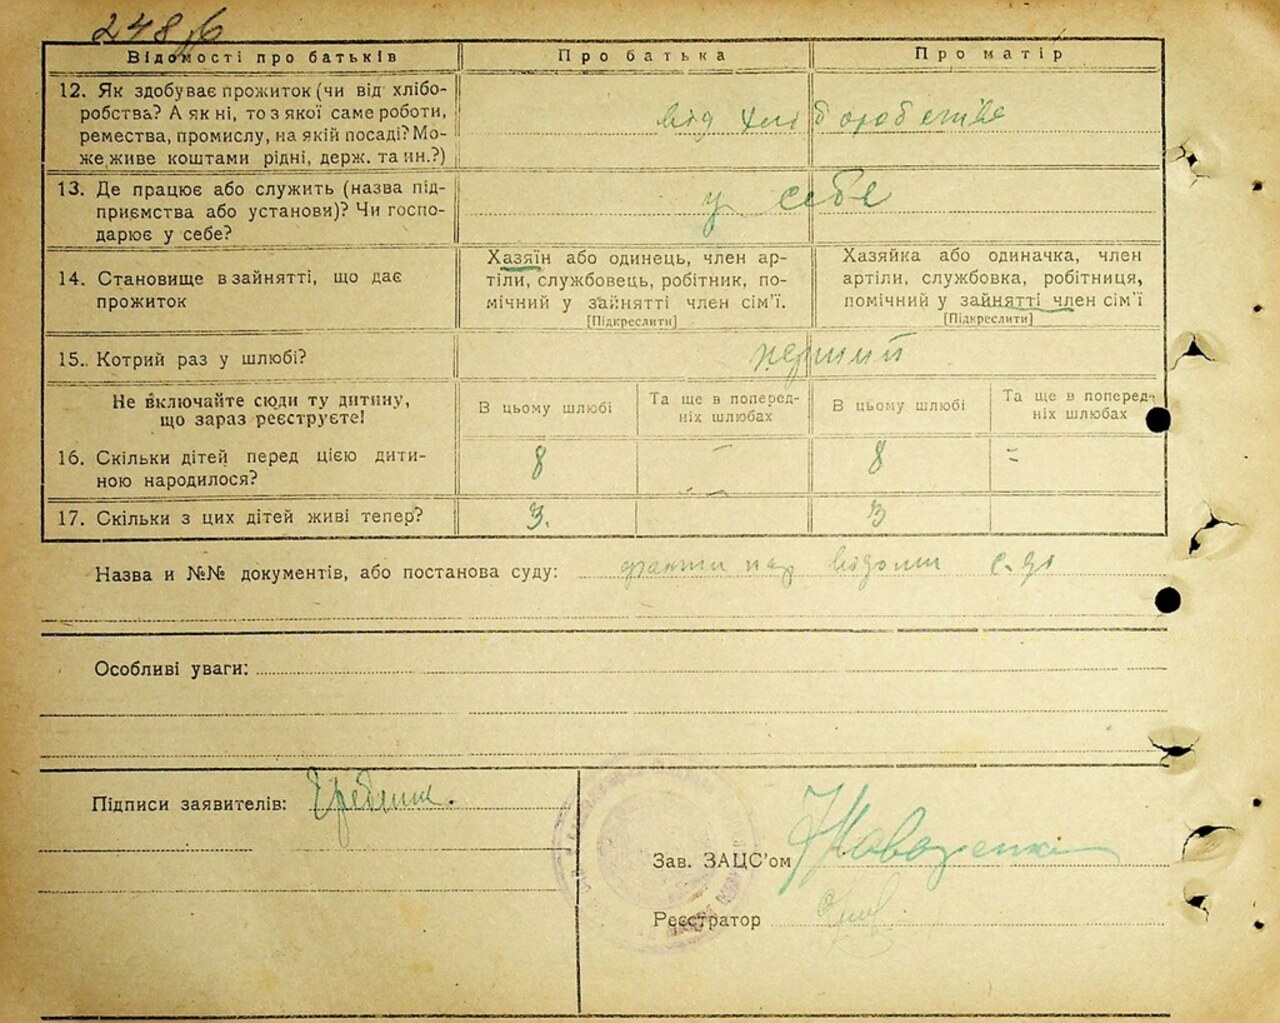 248б
Відомості про батьків Про батька Про матір
12. Як здобуває прожиток (чи від хлібо-
робства? А як ні, то з якої саме роботи,
ремества, промислу, на якій посаді? Мо-
же живе коштами рідні, держ. та ин.?)
від хліборобства
13. Де працює або служить (назва під-
приємства або установи)? Чи госпо-
дарює у себе?
у себе
14. Становище в зайнятті, що дає
прожиток
Хазяїн або одинець, член ар-
тіли, службовець, робітник, по-
мічний у зайнятті член сім'ї.
[Підкреслити]
Хазяйка або одиначка, член
артіли, службовка, робітниця,
помічний у зайнятті член сім'ї
[Підкреслити]
15. Котрий раз у шлюбі? перший
Не включайте сюди ту дитину,
що зараз реєструєте!
В цьому шлюбі
Та ще в поперед-
ніх шлюбах
В цьому шлюбі
Та ще в поперед-
ніх шлюбах
16. Скільки дітей перед цією дити-
ною народилося?
8 – 8 =
17. Скільки з цих дітей живі тепер? 3. 3
Назва и №№ документів, або постанова суду: відомі
Особливі уваги:
Підписи заявителів:
Зав. ЗАЦС'ом
Реєстратор